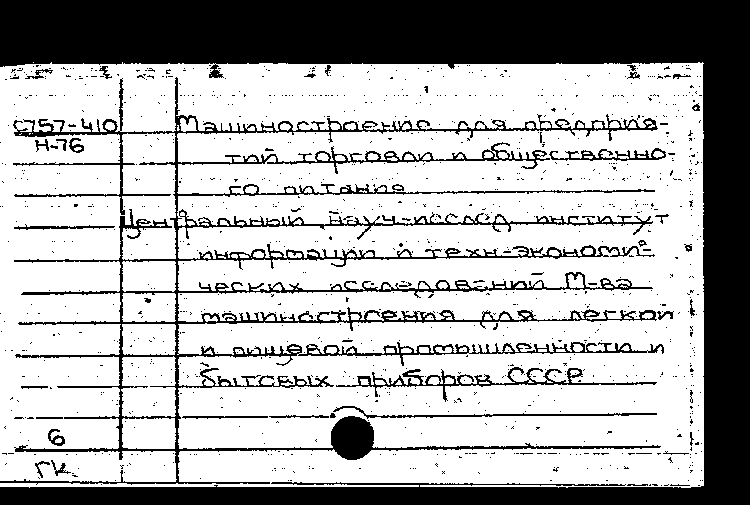 С757-410
Н-76
Машиностроение для предприя-
тий торговли и общественно-
го питания
Центральный науч-исслед. институт
информации и техн-экономи-
ческих исследований М-ва
машиностроения для легкой
и пищевой промышленности и
бытовых приборов СССР
6
ГК